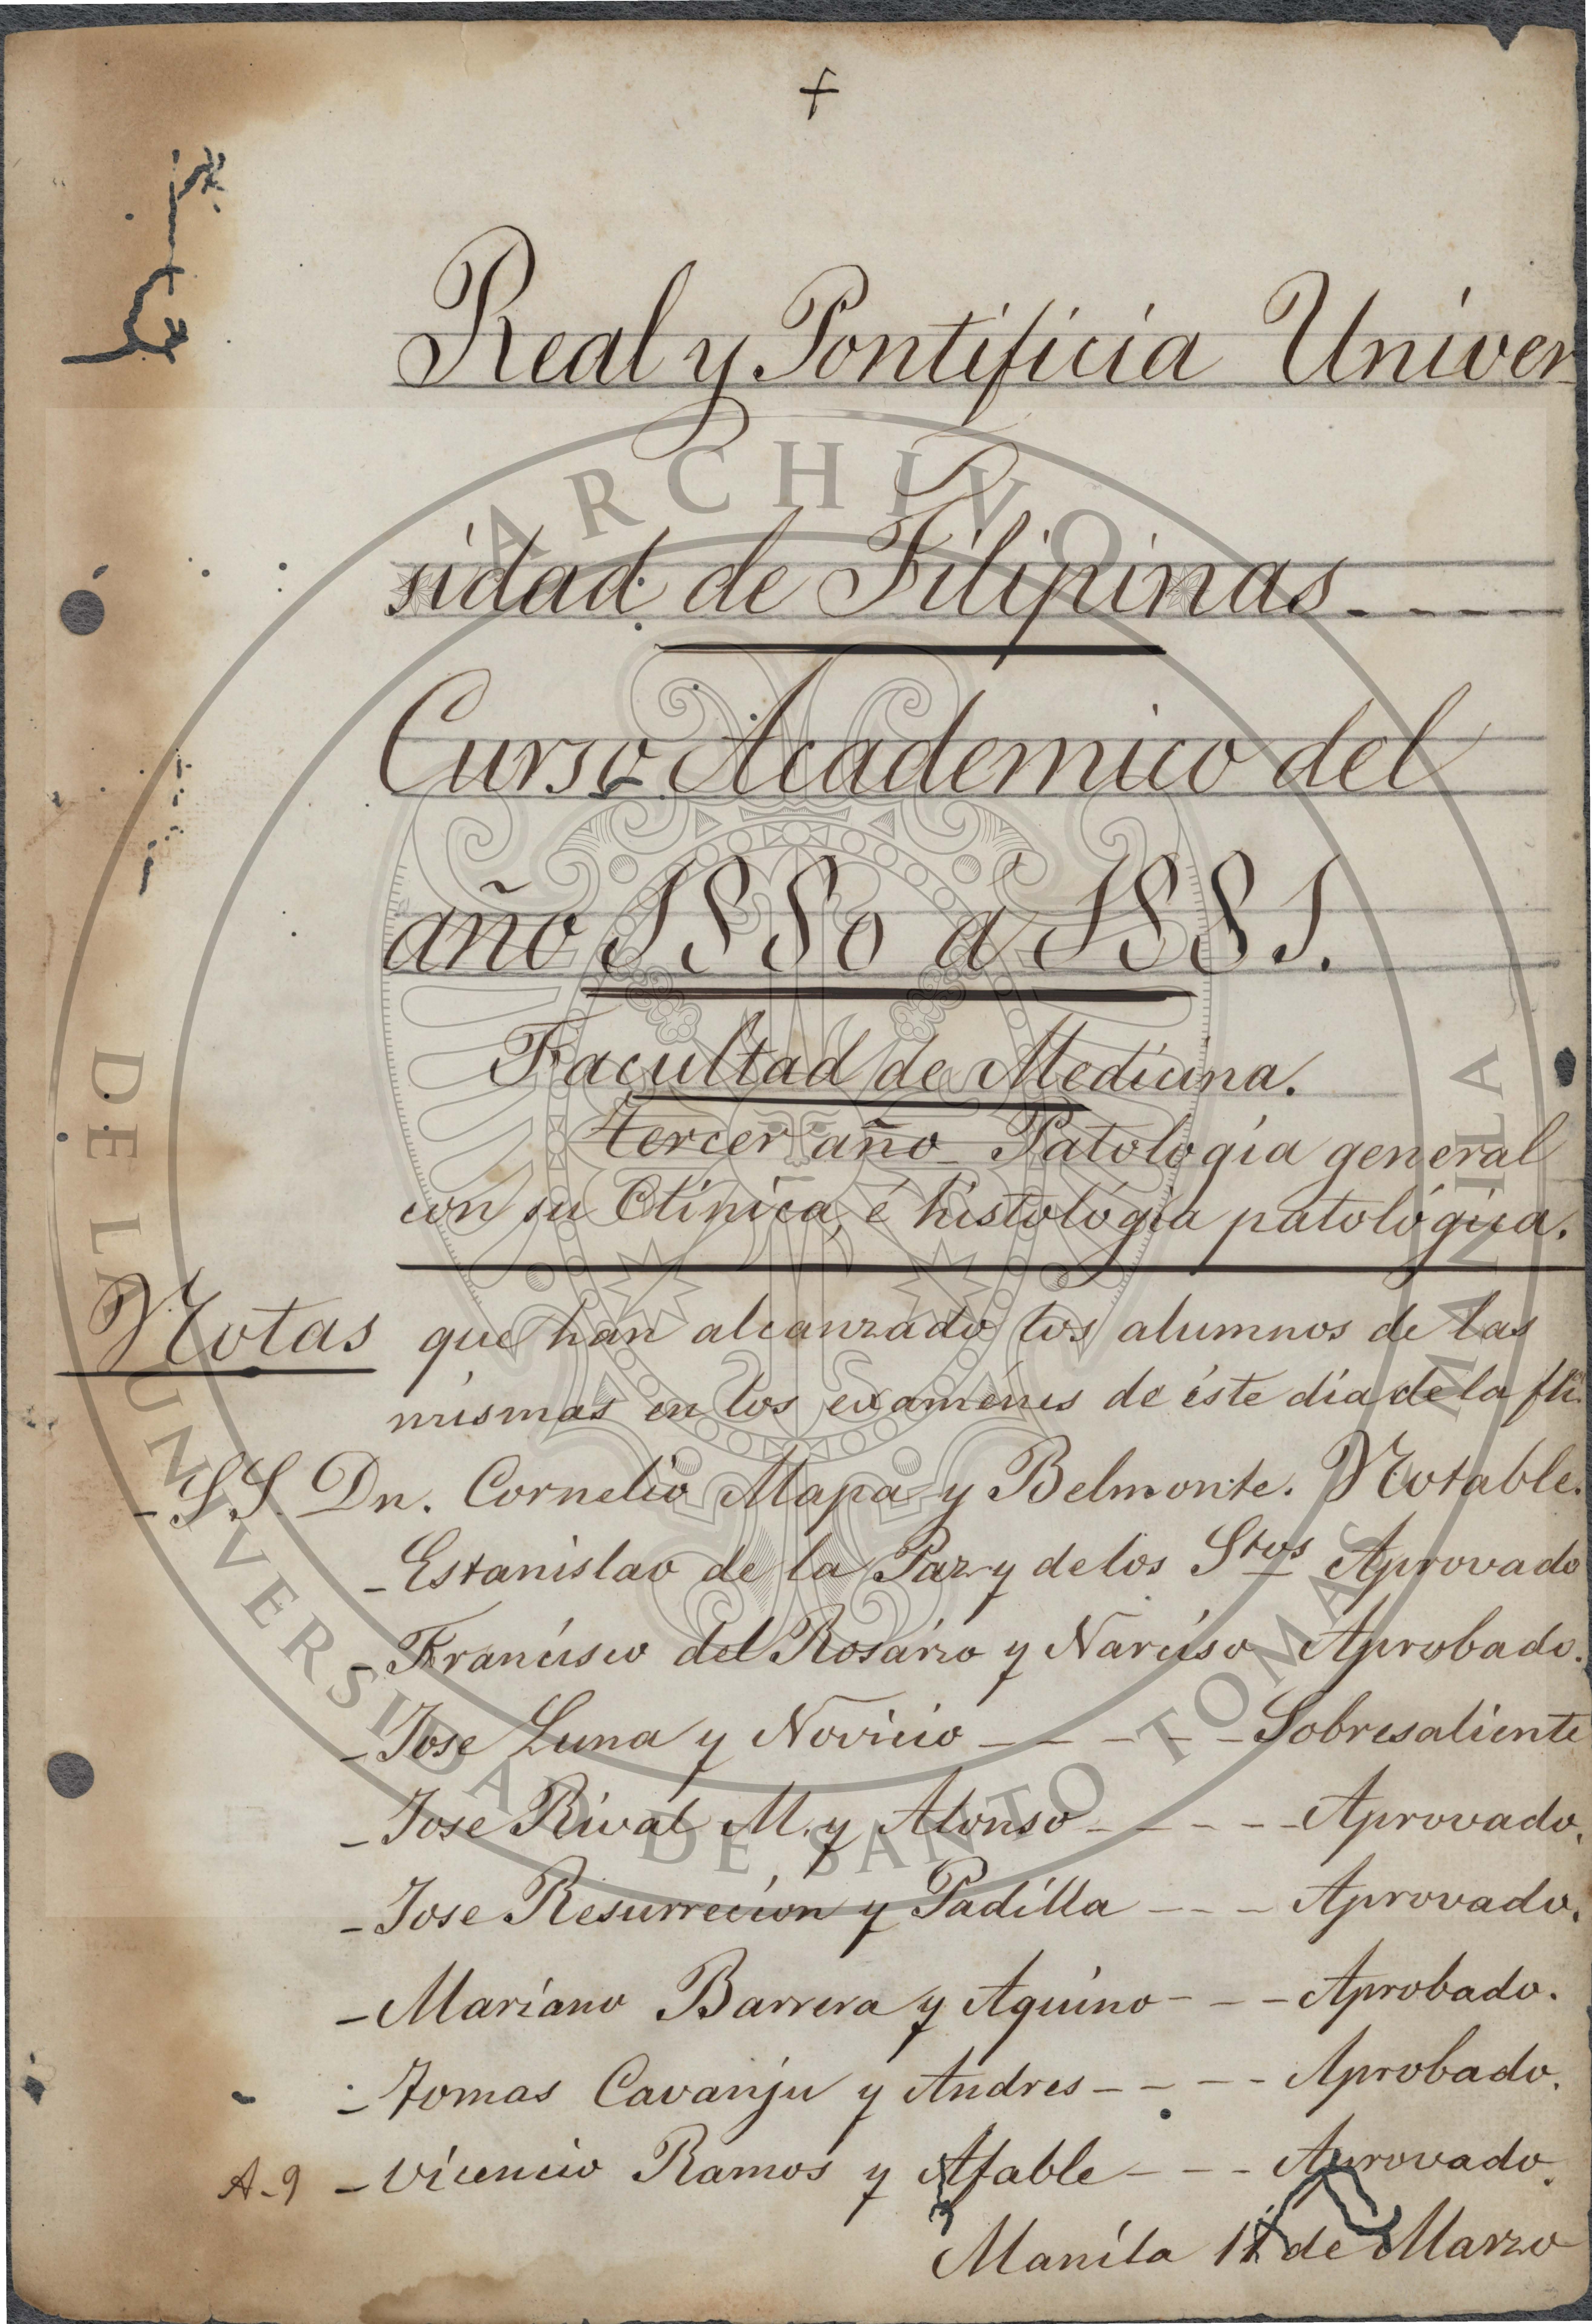 Real y Pontificia Univer
sidad de Filipinas
Curso Academico del
año 1880 á 1881.
Facultad de Medicina.
tercer año Patología general
con su Clínica, é histología patológica.
Notas que han alcanzado los alumnos de las
mismas en los examénes de éste día de la fha.
- SS. Dn. Cornelio Mapa y Belmonte. Notable.
- Estanislao de la Paz y de los Stos Aprovado
- Francisco del Rosario y Narciso Aprobado.
- Jose Luna y Novicio - - - - - Sobresaliente
- Jose Rival M. y Alonso - - - - - Aprovado.
- Jose Resurrecion y Padilla - - - Aprovado.
- Mariano Barrera y Aquino - - - Aprobado.
- Tomas Cavanju y Andres - - - - Aprobado.
A-9 - Vicencio Ramos y Afable - - - Aprovado.
Manila 11 de Marzo
ARCHIVO
DE LA UNIVERSIDAD DE SANTO TOMAS
MANILA